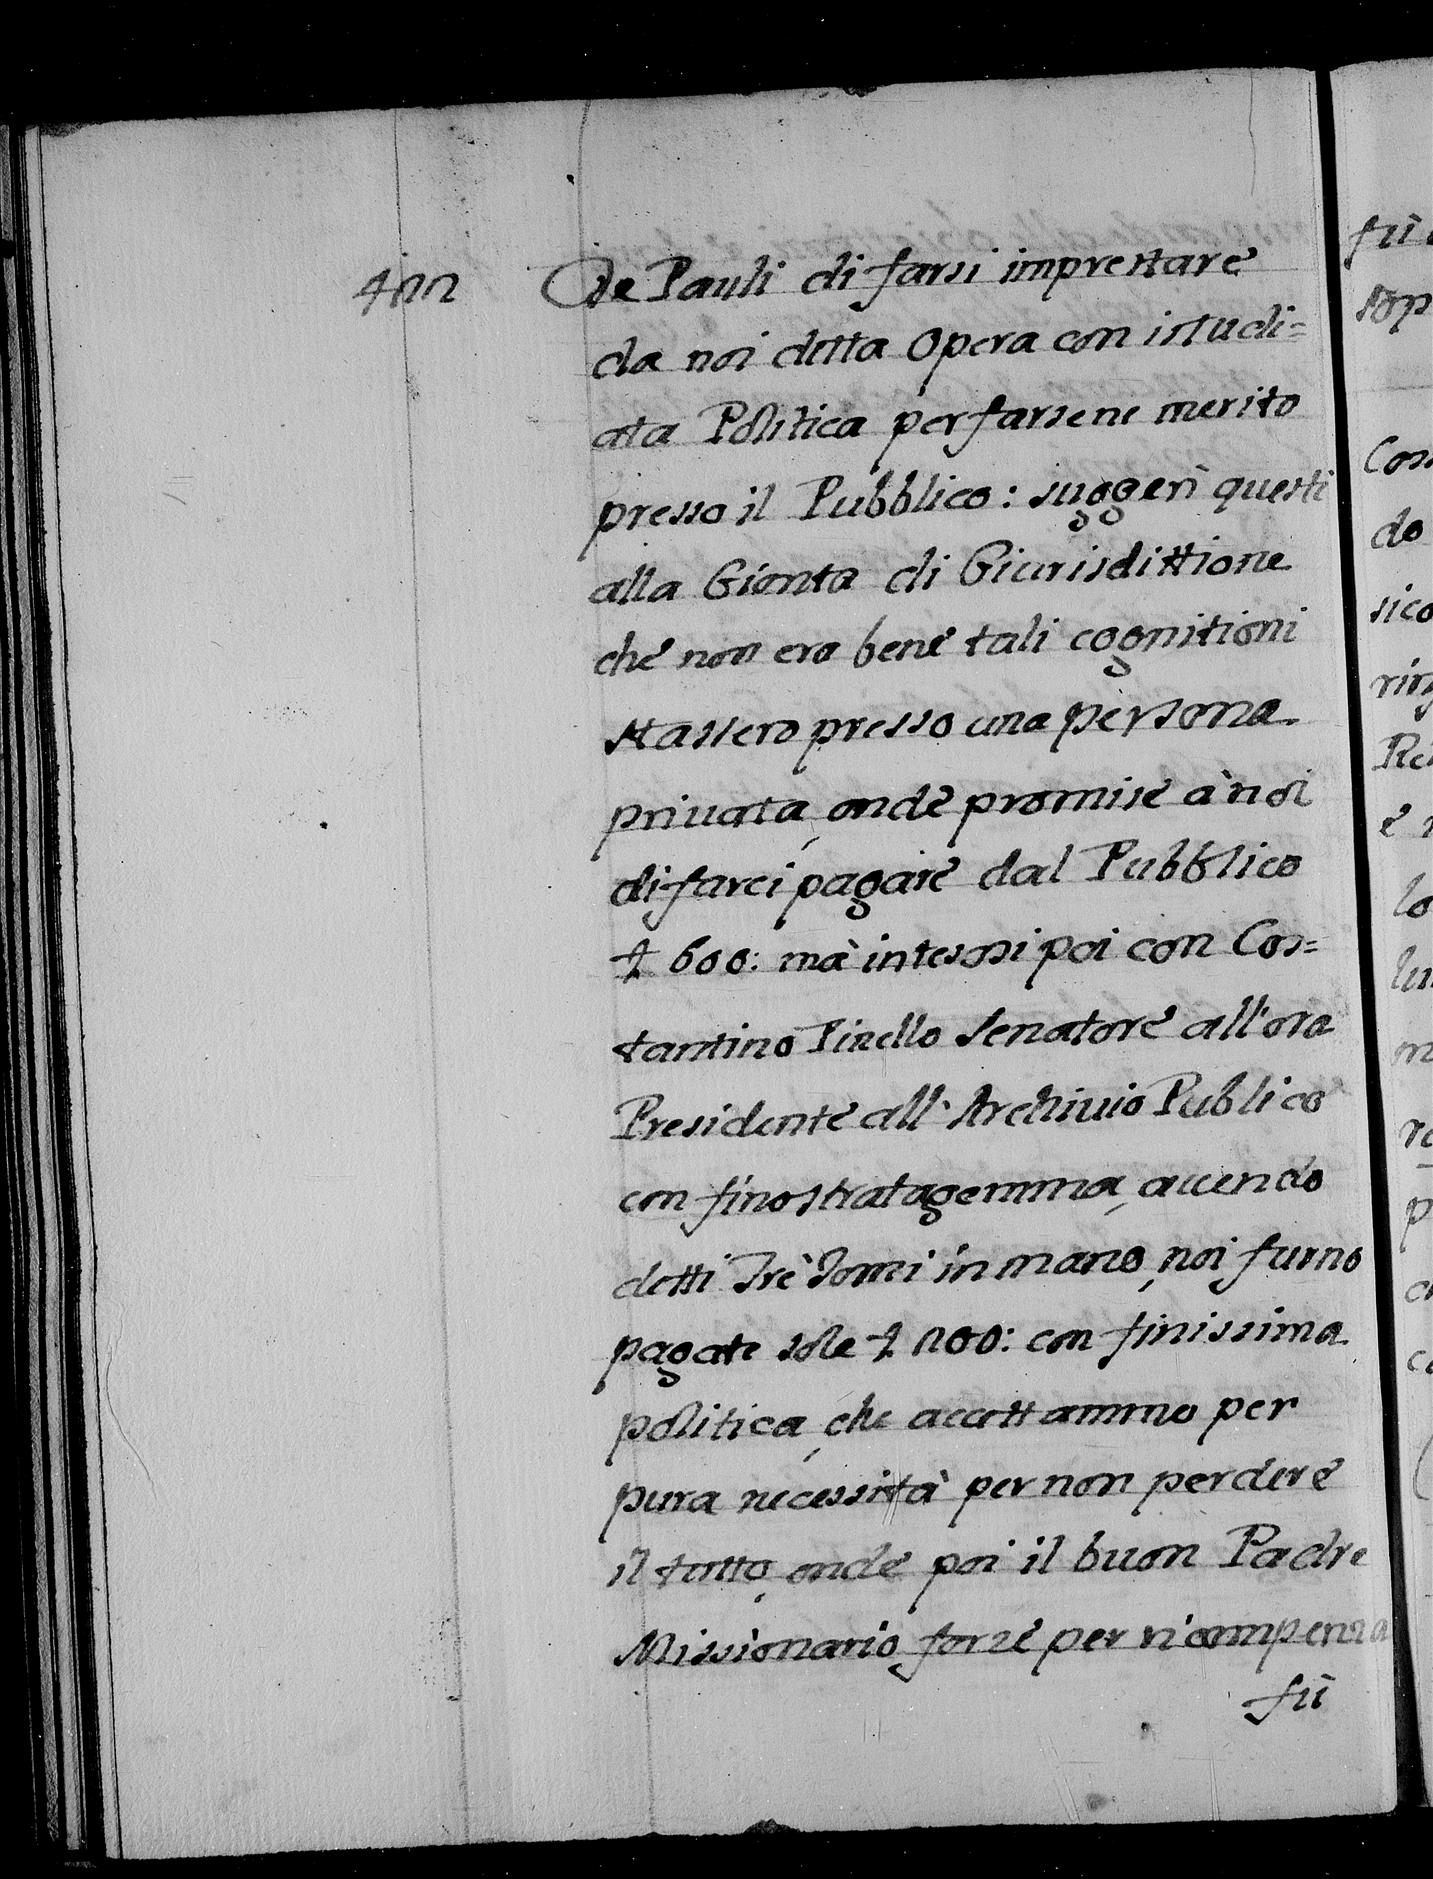 422
De Pauli di farsi imprestare
da noi detta Opera con istudi=
ata Politica per farsene merito
presso il Pubblico: suggerì questi
alla Gionta di Giurisdittione
che non era bene tali cognitioni
stassero presso una persona
privata, onde promise à noi
di farci pagare dal Pubblico
600: mà intesosi poi con Cos=
tantino Pinello Senatore all'ora
Presidente all'Archivio Publico
con fino stratagemma, avendo
detti Trè Tomi in mano, noi furno
pagate sole 200: con finissima
politica, che accettammo per
pura necessità per non perdere
il tutto, onde poi il buon Padre
Missionario forse per ricompensa
fù